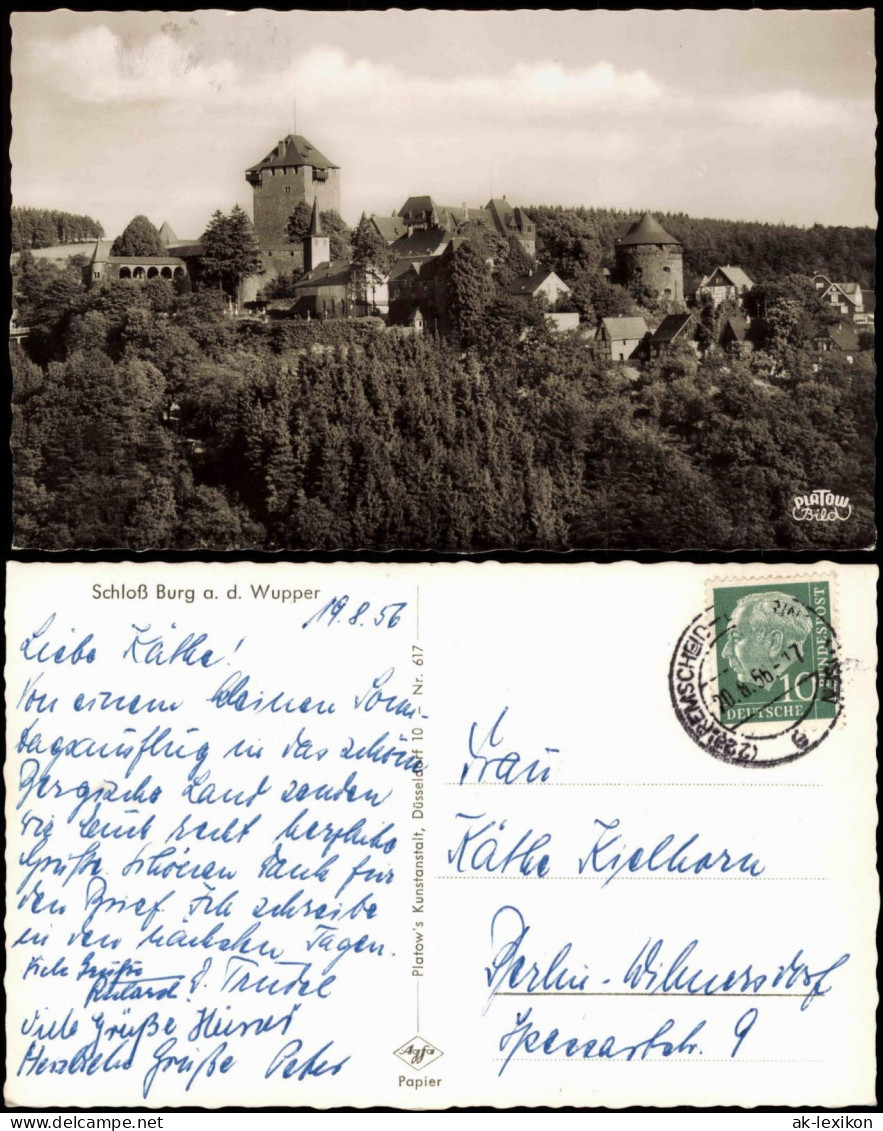 PLATOW
Bild
Schloß Burg a. d. Wupper
19.8.56
Liebe Käthe!
Von einem kleinen Sonn-
tagsausflug in das schöne
Bergische Land senden
wir Euch recht herzliche
Grüße. Schönen Dank für
den Brief. Ich schreibe
in den nächsten Tagen.
Viele Grüße
d. Trudel
Viele Grüße
Herzliche Grüße Peter
Platow's Kunstanstalt, Düsseldorf 10 – Nr. 617
Agfa
Papier
REMSCHEID
20.8.56-17
DEUTSCHE BUNDESPOST
10
Frau
Käthe Kjelhorn
Berlin-Wilmersdorf
Spessartstr. 9
ak-lexikon